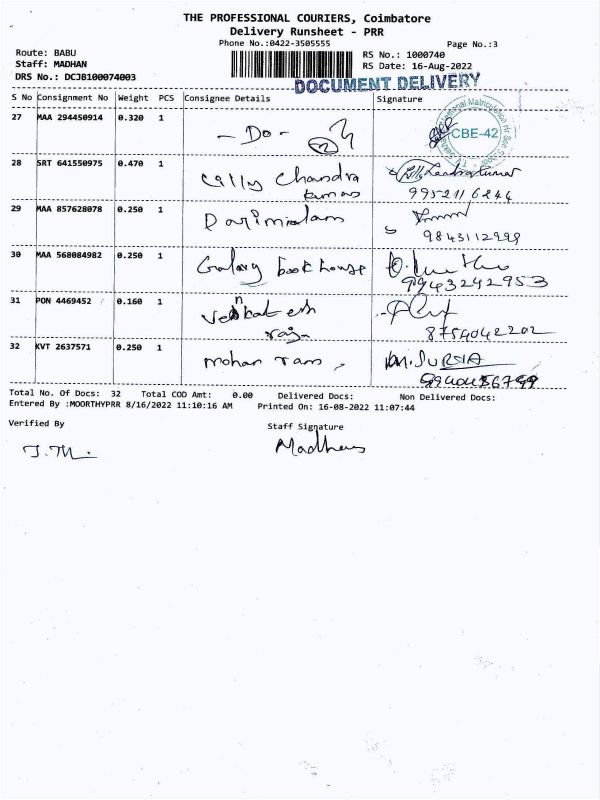 THE PROFESSIONAL COURIERS, Coimbatore
Delivery Runsheet - PRR
Phone No.:0422-3505555
Page No.:3
Route: BABU
RS No.: 1000740
Staff: MADHAN
RS Date: 16-Aug-2022
DRS No.: DCJB100074003
DOCUMENT DELIVERY
S No Consignment No Weight PCS Consignee Details Signature
27 MAA 294450914 0.320 1 - Do -
CBE-42
28 SRT 641550975 0.470 1 Cilly Chandra
kumar
9952116844
29 MAA 857628078 0.250 1
9843112999
30 MAA 568084982 0.250 1 Galaxy book house
9943242953
31 PON 4469452 0.160 1 Venkatesh
raja
8754042202
32 KVT 2637571 0.250 1 mohan ram
Total No. Of Docs: 32 Total COD Amt: 0.00 Delivered Docs: Non Delivered Docs:
Entered By :MOORTHYPRR 8/16/2022 11:10:16 AM Printed On: 16-08-2022 11:07:44
Verified By
Staff Signature